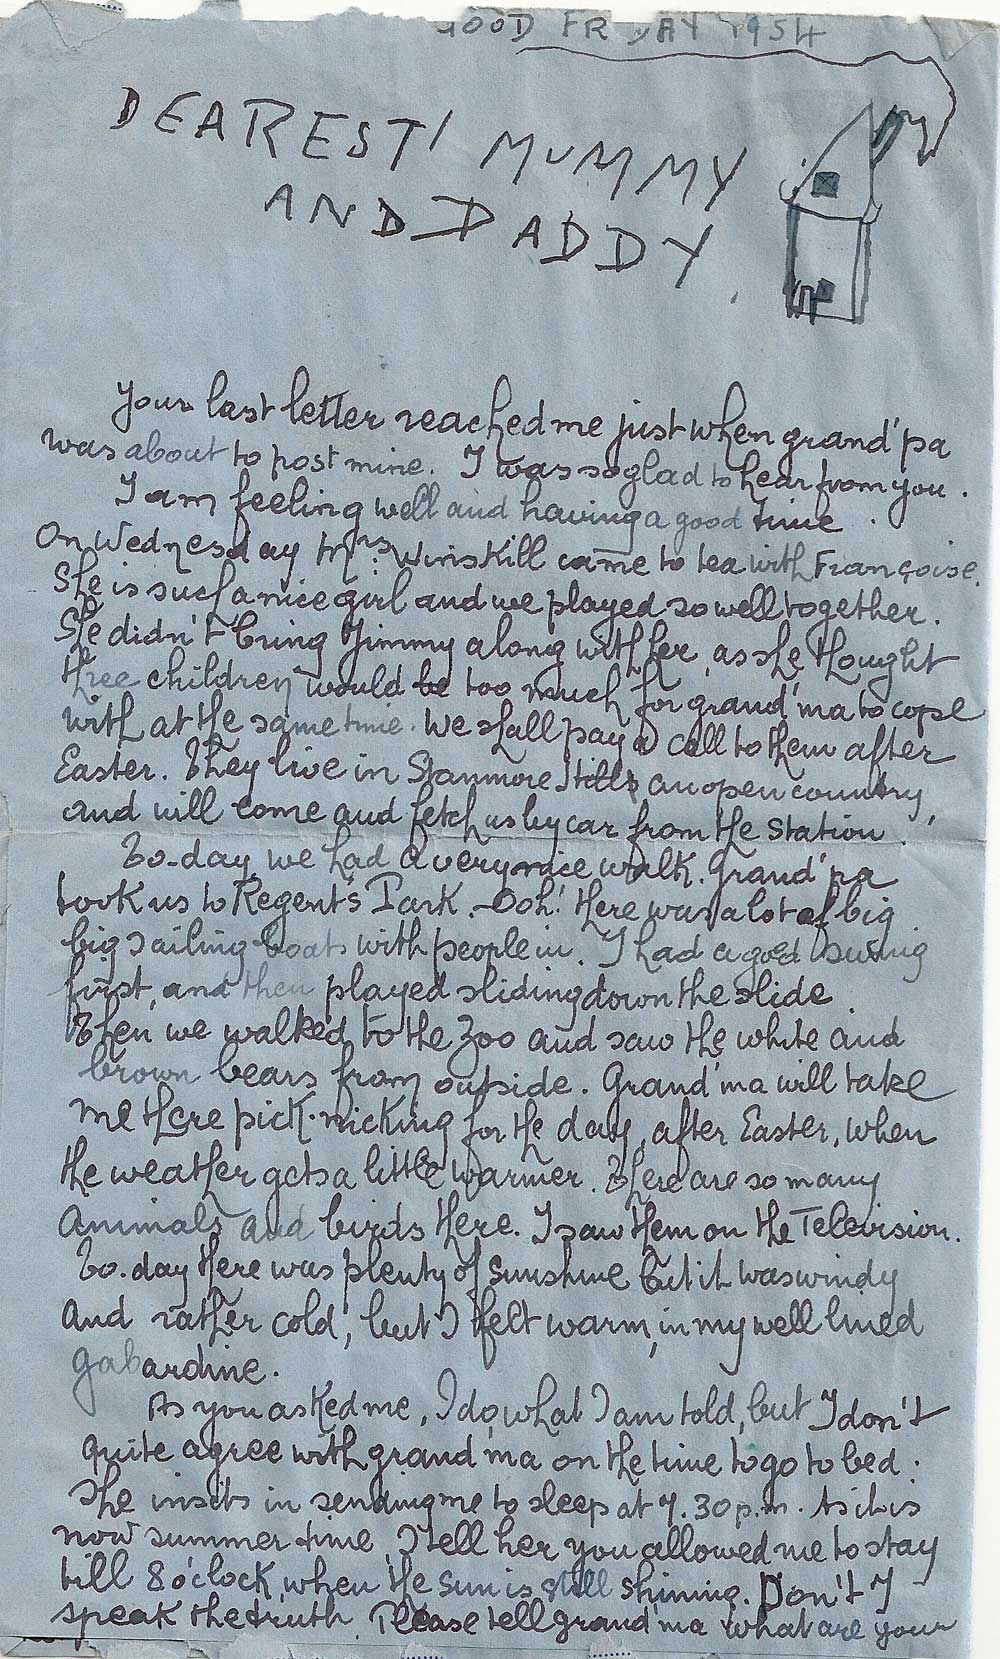 GOOD FRIDAY 1954
DEAREST MUMMY
AND DADDY.
Your last letter reached me just when grand'pa
was about to post mine. I was so glad to hear from you.
I am feeling well and having a good time.
On Wednesday Mrs. Winskill came to tea with Françoise.
She is such a nice girl and we played so well together.
She didn't bring Jimmy along with her, as she thought
three children would be too much for grand'ma to cope
with at the same time. We shall pay a call to them after
Easter. They live in Stanmore Hills an open country,
and will come and fetch us by car from the station.
To-day we had a very nice walk. Grand'pa
took us to Regent's Park. Ooh! there was a lot of big
big sailing boats with people in. I had a good swing
first, and then played sliding down the slide
Then we walked to the Zoo and saw the white and
brown bears from outside. Grand'ma will take
me there pick-nicking for the day, after Easter, when
the weather gets a little warmer. There are so many
animals and birds there. I saw them on the Television.
To-day there was plenty of sunshine but it was windy
and rather cold, but I felt warm, in my well lined
gabardine.
As you asked me, I do what I am told, but I don't
quite agree with grand'ma on the time to go to bed:
She insits in sending me to sleep at 7.30 p.m. As it is
now summer time, I tell her you allowed me to stay
till 8 o'clock, when the sun is still shining. Don't I
speak the truth. Please tell grand'ma what are your